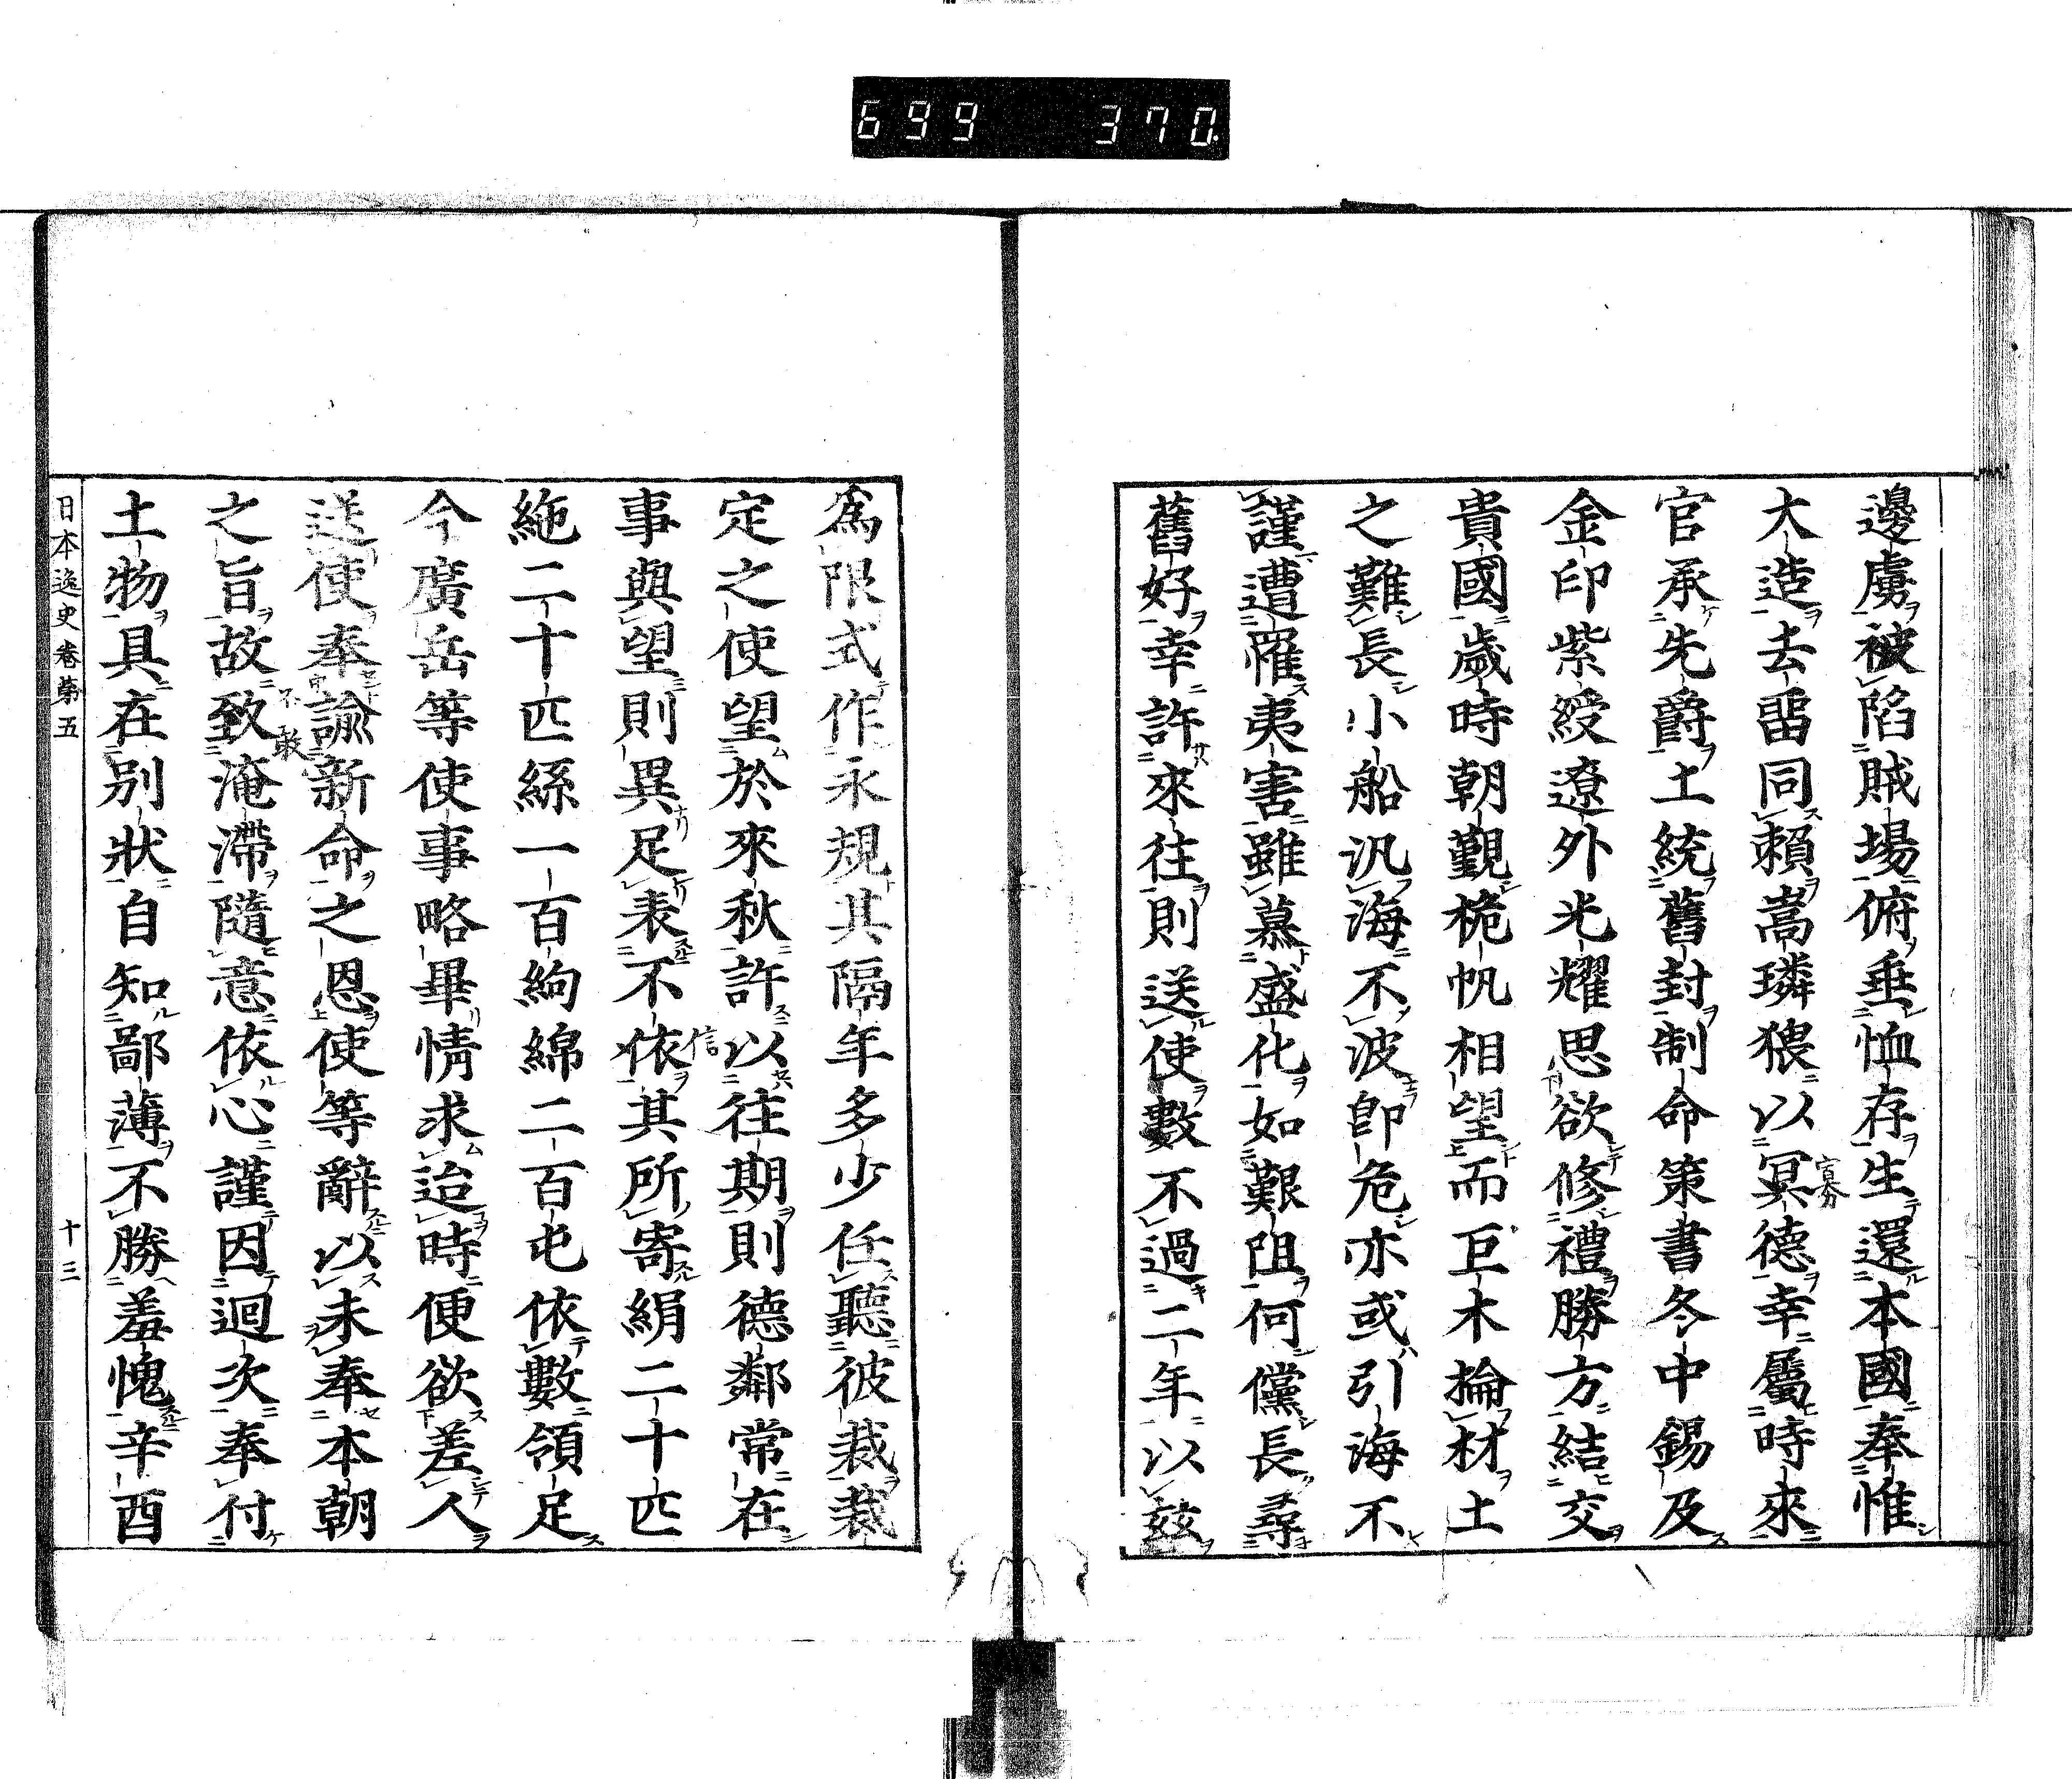 699 370
邊虜被陷賊場俯垂恤存生還本國奉惟
大造去留同賴嵩璘猥以冥德幸屬時來
官承先爵土統舊封制命策書冬中錫及
金印紫綬遼外光耀思欲修禮勝方結交
貴國歲時朝覲桅帆相望而巨木掄材土
之難長小船汎海不波即危亦或引海不
謹遭罹夷害雖慕盛化如艱阻何儻長尋
舊好幸許來往則送使數不過二年以玆
為限式作永規其隔年多少任聽彼裁裁
定之使望於來秋許以往期則德鄰常在
事與望則異足表不依其所寄絹二十匹
信
絁二十匹絲一百絇綿二百屯依數領足
今廣岳等使事略畢情求迨時便欲差人
送使奉諭新命之恩使等辭以未奉本朝
之旨故致淹滯隨意依心謹因迴次奉付
不敢
土物具在別狀自知鄙薄不勝羞愧辛酉
日本逸史卷第五 十三